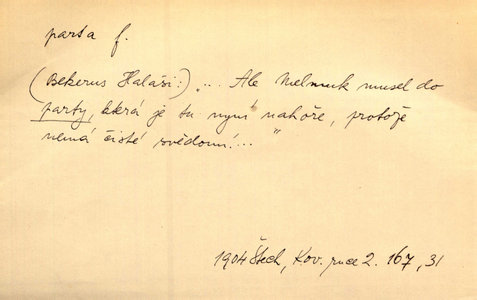 parta f.
(Bekerus Halaši:) „... Ale Melmuk musel do
party, která je tu nyní nahoře, protože
nemá čisté svědomí..."
1904 Štech, Kov. ruce 2. 167, 31